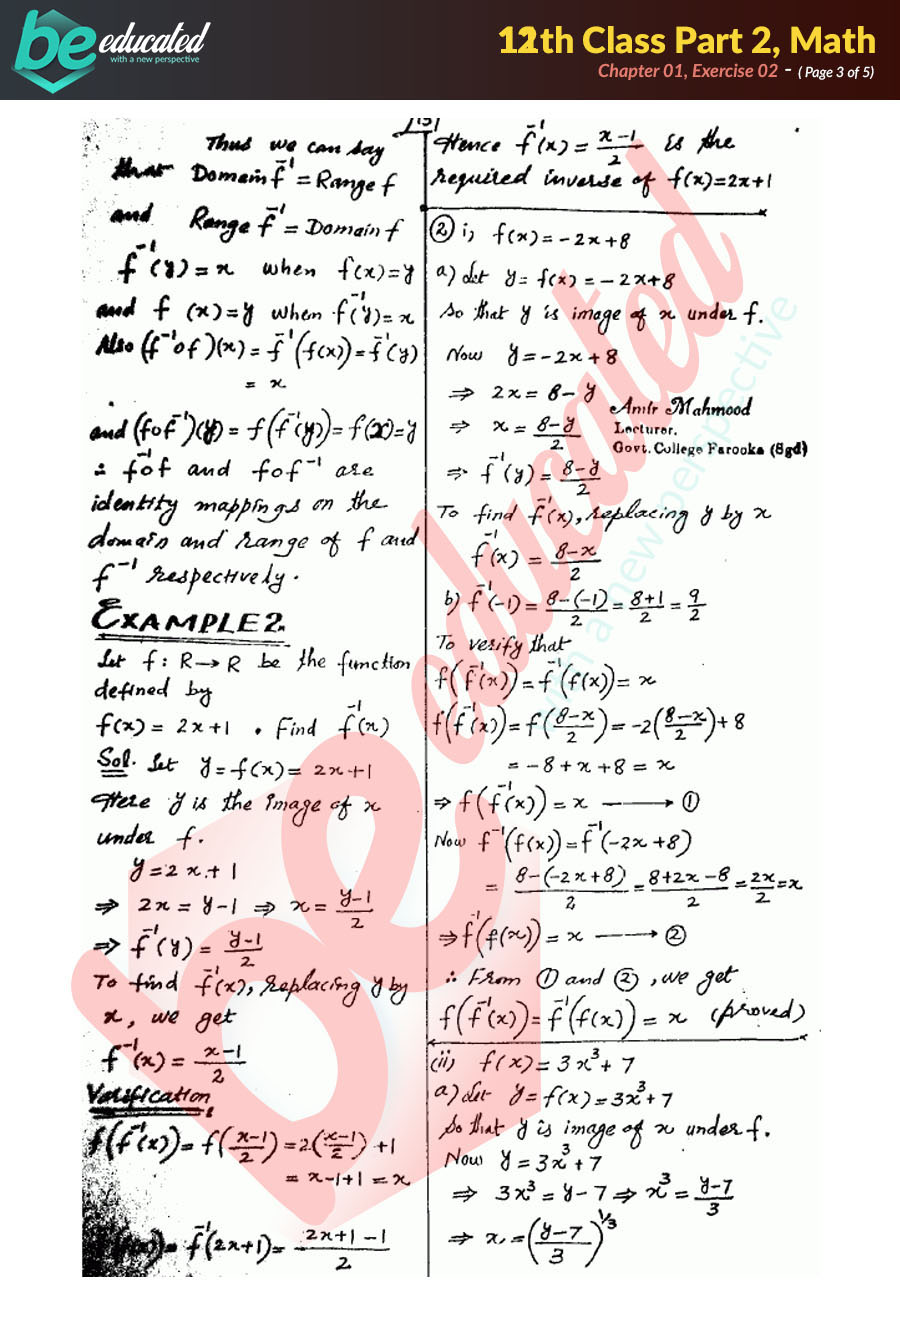 be educated
with a new perspective
12th Class Part 2, Math
Chapter 01, Exercise 02 - ( Page 3 of 5)
Thus we can say
that Domain f⁻¹ = Range f
and Range f⁻¹ = Domain f
f⁻¹(y) = x when f(x) = y
and f (x) = y when f⁻¹(y) = x
Also (f⁻¹of)(x) = f⁻¹(f(x)) = f⁻¹(y)
= x
and (fof⁻¹)(y) = f(f⁻¹(y)) = f(x) = y
∴ f⁻¹of and fof⁻¹ are
identity mappings on the
domain and range of f and
f⁻¹ respectively.
EXAMPLE 2.
Let f: R→R be the function
defined by
f(x) = 2x+1 . Find f⁻¹(x)
Sol. Let y = f(x) = 2x+1
Here y is the image of x
under f.
y = 2x + 1
⇒ 2x = y-1 ⇒ x = (y-1)/2
⇒ f⁻¹(y) = (y-1)/2
To find f⁻¹(x), replacing y by
x, we get
f⁻¹(x) = (x-1)/2
Verification
f(f⁻¹(x)) = f((x-1)/2) = 2((x-1)/2) + 1
= x-1+1 = x
= f⁻¹(2x+1) = (2x+1-1)/2
Hence f⁻¹(x) = (x-1)/2 is the
required inverse of f(x)=2x+1
② i, f(x) = -2x+8
a) Let y = f(x) = -2x+8
So that y is image of x under f.
Now y = -2x+8
⇒ 2x = 8-y
⇒ x = (8-y)/2
Amir Mahmood
Lecturer.
Govt. College Farooka (Sgd)
⇒ f⁻¹(y) = (8-y)/2
To find f⁻¹(x), replacing y by x
f⁻¹(x) = (8-x)/2
b) f⁻¹(-1) = (8-(-1))/2 = (8+1)/2 = 9/2
To verify that
f(f⁻¹(x)) = f⁻¹(f(x)) = x
f(f⁻¹(x)) = f((8-x)/2) = -2((8-x)/2) + 8
= -8+x+8 = x
⇒ f(f⁻¹(x)) = x ⟶ ①
Now f⁻¹(f(x)) = f⁻¹(-2x+8)
= (8-(-2x+8))/2 = (8+2x-8)/2 = 2x/2 = x
⇒ f⁻¹(f(x)) = x ⟶ ②
∴ From ① and ②, we get
f(f⁻¹(x)) = f⁻¹(f(x)) = x (proved)
(ii) f(x) = 3x³+7
a) Let y = f(x) = 3x³+7
So that y is image of x under f.
Now y = 3x³+7
⇒ 3x³ = y-7 ⇒ x³ = (y-7)/3
⇒ x = ((y-7)/3)^1/3
be educated
with a new perspective